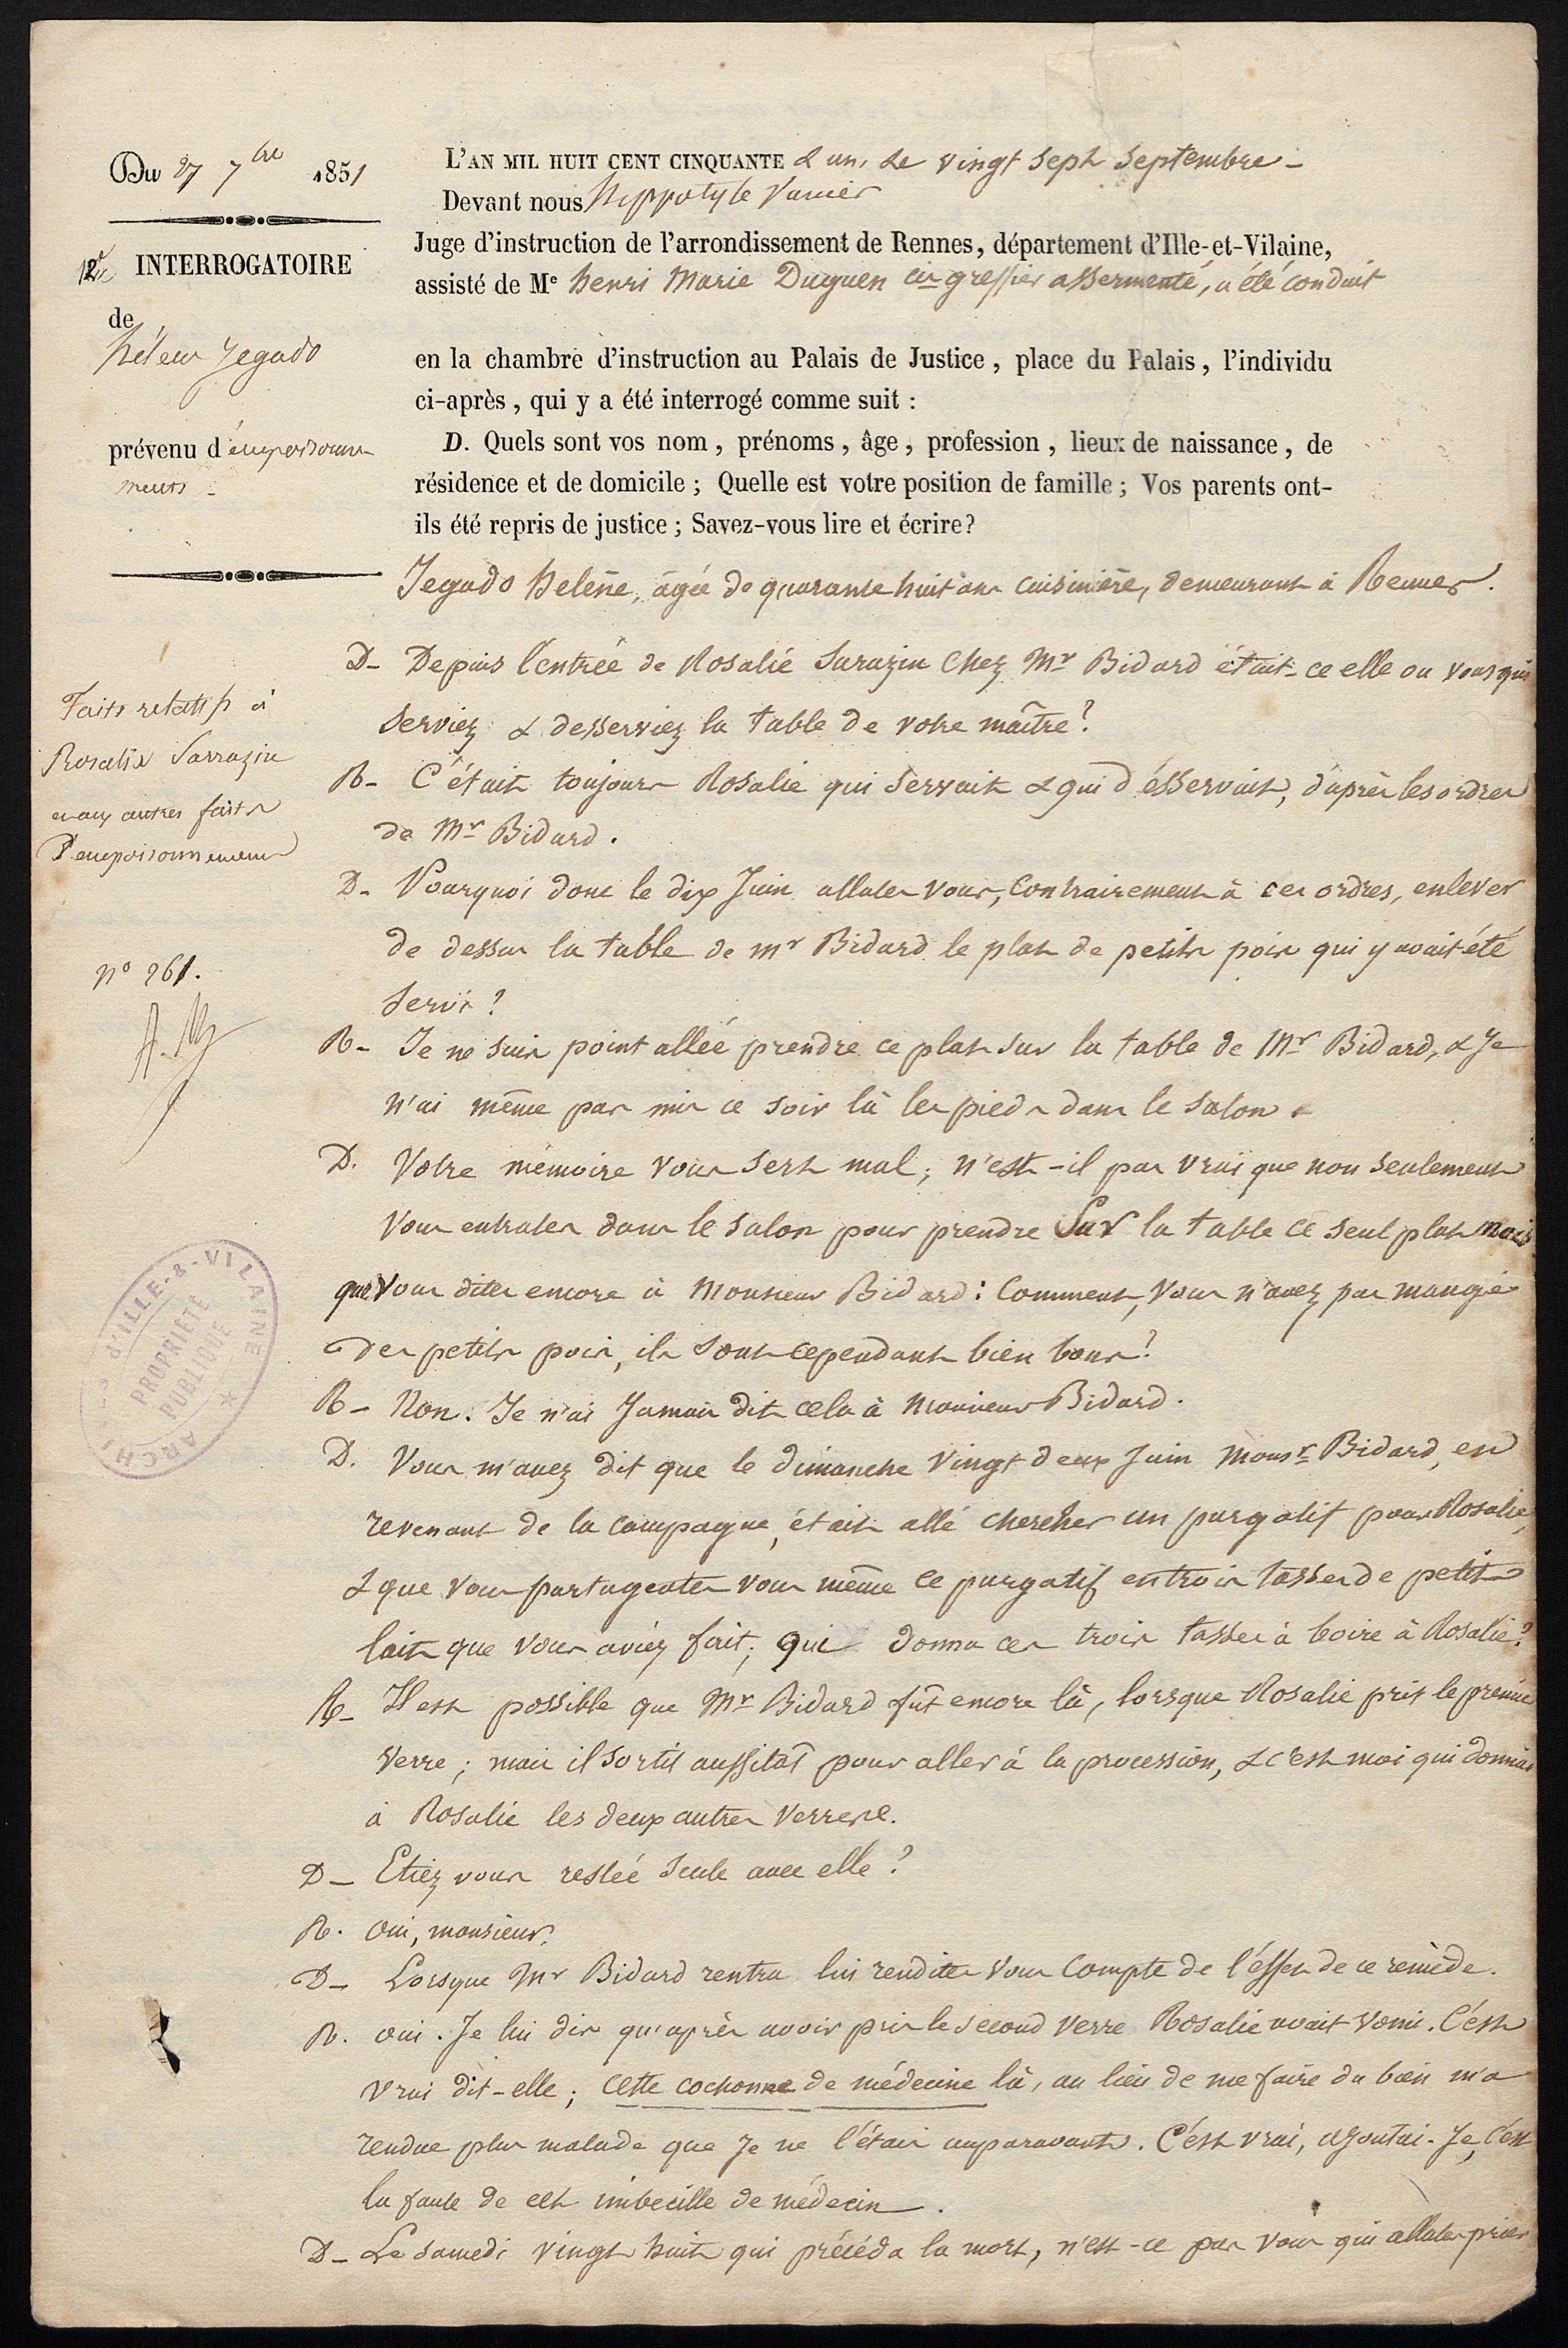 Du 27 7bre 1851
12e INTERROGATOIRE
de
hélène Jegado
prévenu d'empoisonne
ments -
Faits relatifs à
Rosalie Sarrazin
et aux autres faits
d'empoisonnement
n° 261.
L'AN MIL HUIT CENT CINQUANTE & un, le vingt sept Septembre -
Devant nous hippolyte Vanier
Juge d'instruction de l'arrondissement de Rennes, département d'Ille-et-Vilaine,
assisté de Me henri Marie Duguen greffier assermenté, a été conduit
en la chambre d'instruction au Palais de Justice, place du Palais, l'individu
ci-après, qui y a été interrogé comme suit :
D. Quels sont vos nom, prénoms, âge, profession, lieux de naissance, de
résidence et de domicile ; Quelle est votre position de famille ; Vos parents ont-
ils été repris de justice ; Savez-vous lire et écrire ?
Jegado helène, âgée de quarante huit ans cuisinière, demeurant à Rennes.
D- Depuis l'entrée de Rosalie Sarazin chez Mr Bidard était-ce elle ou vous qui
serviez & desserviez la table de votre maître ?
R- C'était toujours Rosalie qui servait & qui désservait, d'après les ordres
de Mr Bidard.
D- Pourquoi donc le dix Juin allates vous, contrairement à ces ordres, enlever
de dessus la table de mr Bidard le plat de petits pois qui y avait été
servi ?
R- Je ne suis point allée prendre ce plat sur la table de Mr Bidard, & Je
n'ai même pas mis ce soir là les pieds dans le salon.
D. Votre mémoire vous sert mal ; n'est-il pas vrai que non seulement
vous entrates dans le salon pour prendre Sur la table ce seul plat mais
que vous dites encore à Monsieur Bidard : Comment, vous n'avez pas mangé
des petits pois, ils sont cependant bien bons ?
R- Non. Je n'ai Jamais dit cela à Monsieur Bidard.
D. Vous m'avez dit que le dimanche vingt deux Juin Monsr Bidard, en
revenant de la campagne, était allé chercher un purgatif pour Rosalie,
& que vous partageates vous même ce purgatif en trois tasses de petit
lait que vous aviez fait ; qui donna ces trois tasses à boire à Rosalie ?
R- Il est possible que Mr Bidard fût encore là, lorsque Rosalie prit le premier
verre ; mais il sortit aussitôt pour aller à la procession, & c'est moi qui donnai
à Rosalie les deux autres verres.
D- Etiez vous restée seule avec elle ?
R. oui, monsieur.
D- Lorsque Mr Bidard rentra lui rendites vous compte de l'effet de ce remède.
R. oui. Je lui dis qu'après avoir pris le second verre Rosalie avait vomi. C'est
vrai dit-elle ; cette cochonne de médecine là, au lieu de me faire du bien m'a
rendue plus malade que Je ne l'étais auparavant. C'est vrai, ajoutai-Je, c'est
la faute de cet imbecille de médecin.
D- Le samedi vingt huit qui précéda la mort, n'est-ce pas vous qui allates prier
ARCHIVES D'ILLE-&-VILAINE
PROPRIÉTÉ
PUBLIQUE